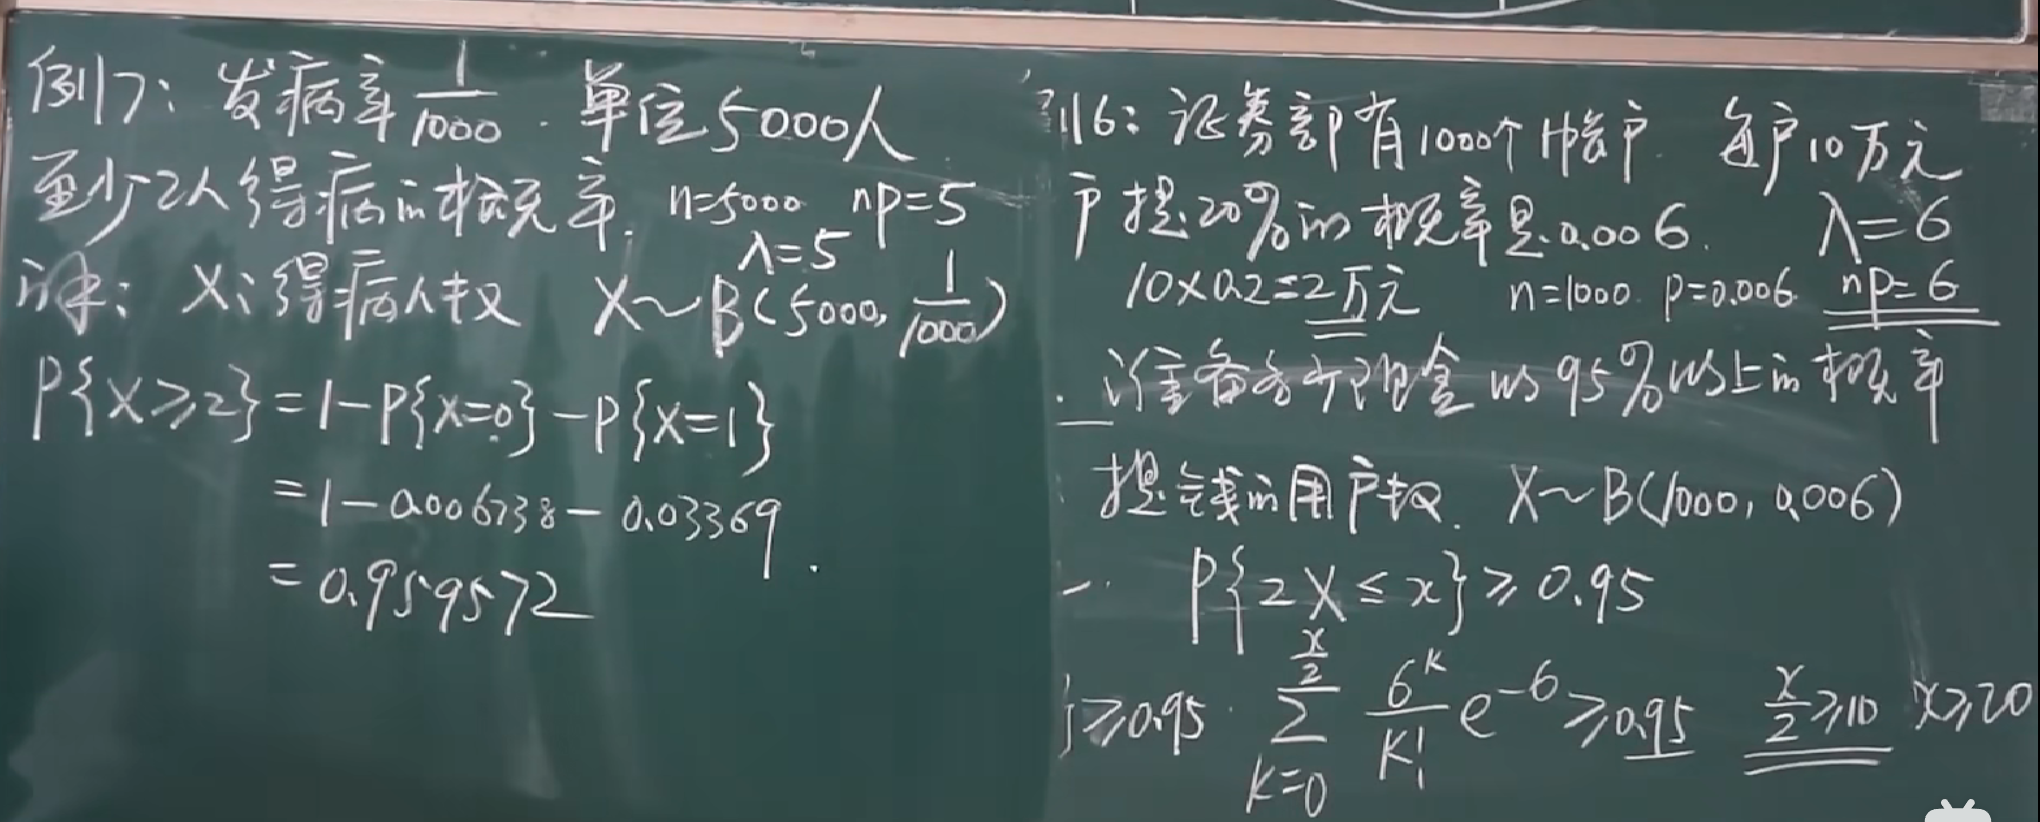 例7：发病率 1/1000 . 单位5000人
至少2人得病的概率. n=5000 np=5
λ=5
解：X：得病人数 X~B(5000, 1/1000)
P{X≥2}=1-P{X=0}-P{X=1}
=1-0.006738-0.03369
=0.959572
例6：证券部有1000个帐户. 每户10万元
户提20%的概率是0.006. λ=6
10×0.2=2万元 n=1000. p=0.006. np=6
准备多少现金 以95%以上的概率
提钱的用户数. X~B(1000, 0.006)
P{2X≤x}≥0.95
}≥0.95. ∑_{k=0}^{x/2} 6^k/k! e^{-6}≥0.95 x/2≥10 x≥20